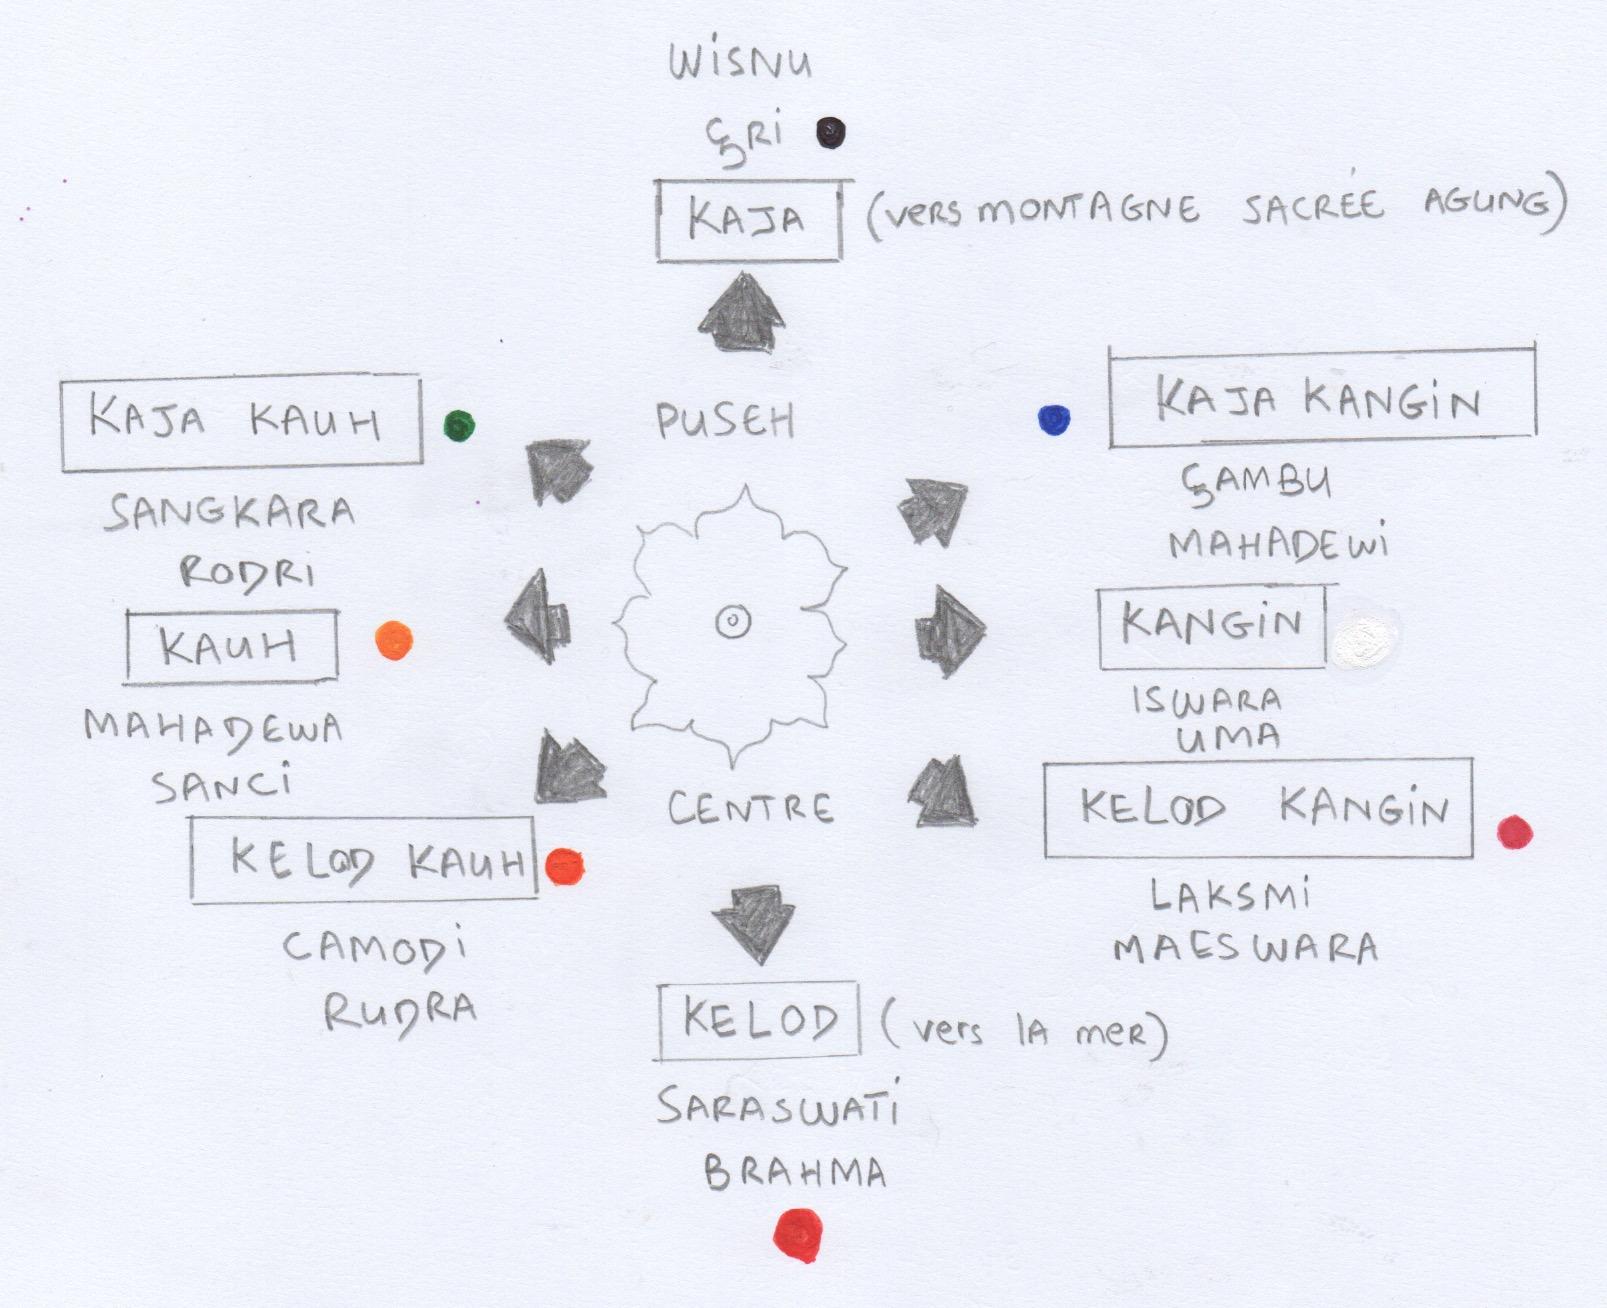 WISNU
ÇRI
KAJA (VERS MONTAGNE SACRÉE AGUNG)
KAJA KAUH
SANGKARA
RODRI
PUSEH
KAJA KANGIN
ÇAMBU
MAHADEWI
KAUH
MAHADEWA
SANCI
KANGIN
ISWARA
UMA
KELOD KAUH
CAMODI
RUDRA
CENTRE
KELOD KANGIN
LAKSMI
MAESWARA
KELOD (vers la mer)
SARASWATI
BRAHMA